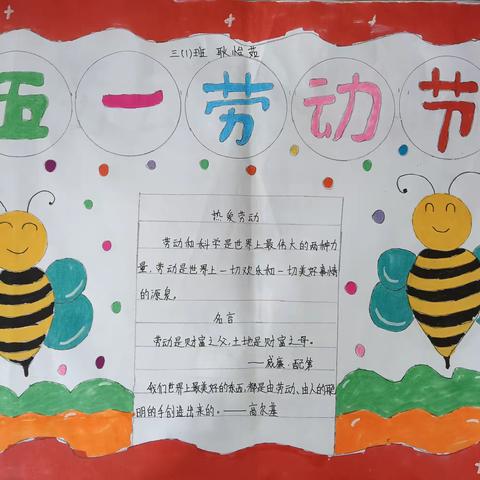 三(1)班 耿怡茹
五一劳动节
热爱劳动
劳动和科学是世界上最伟大的两种力
量,劳动是世界上一切欢乐和一切美好事情
的源泉。
名言
劳动是财富之父,土地是财富之母。
——威廉·配第
我们世界上最美好的东西,都是由劳动、由人的聪
明的手创造出来的。——高尔基